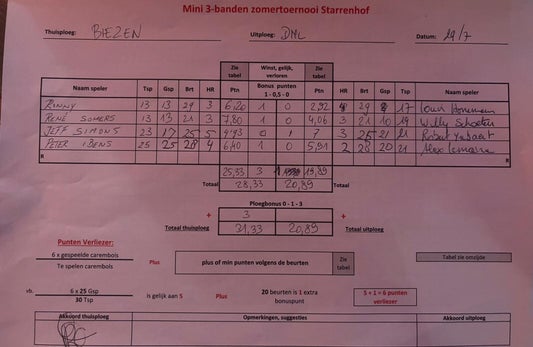 Mini 3-banden zomertoernooi Starrenhof
Thuisploeg: BIEZEN Uitploeg: DML Datum: 29/7
Zie tabel Winst, gelijk, verloren Zie tabel
Naam speler Tsp Gsp Brt HR Ptn Bonus punten 1 - 0,5 - 0 Ptn HR Brt Gsp Tsp Naam speler
RONNY 13 13 29 3 6,20 1 0 2,92 29 8 17
RENÉ SOMERS 13 13 21 3 7,80 1 0 4,06 3 21 10 19 Willy
JEFF SIMONS 23 17 25 5 4,93 0 1 7 3 25 21 21 Robert
PETER IDENS 25 25 28 4 6,40 1 0 5,91 2 28 20 21 Alex
R R
25,33 3 1 19,89
Totaal 28,33 20,89 Totaal
Ploegbonus 0 - 1 - 3
+ 3 +
Totaal thuisploeg 31,33 20,89 Totaal uitploeg
Punten Verliezer:
6 x gespeelde carembois
Te spelen carembois
Plus plus of min punten volgens de beurten Zie tabel
Tabel zie omzijde
vb. 6 x 25 Gsp
30 Tsp
is gelijk aan 5 Plus 20 beurten is 1 extra bonuspunt
5 + 1 = 6 punten verliezer
Akkoord thuisploeg Opmerkingen, suggesties Akkoord uitploeg